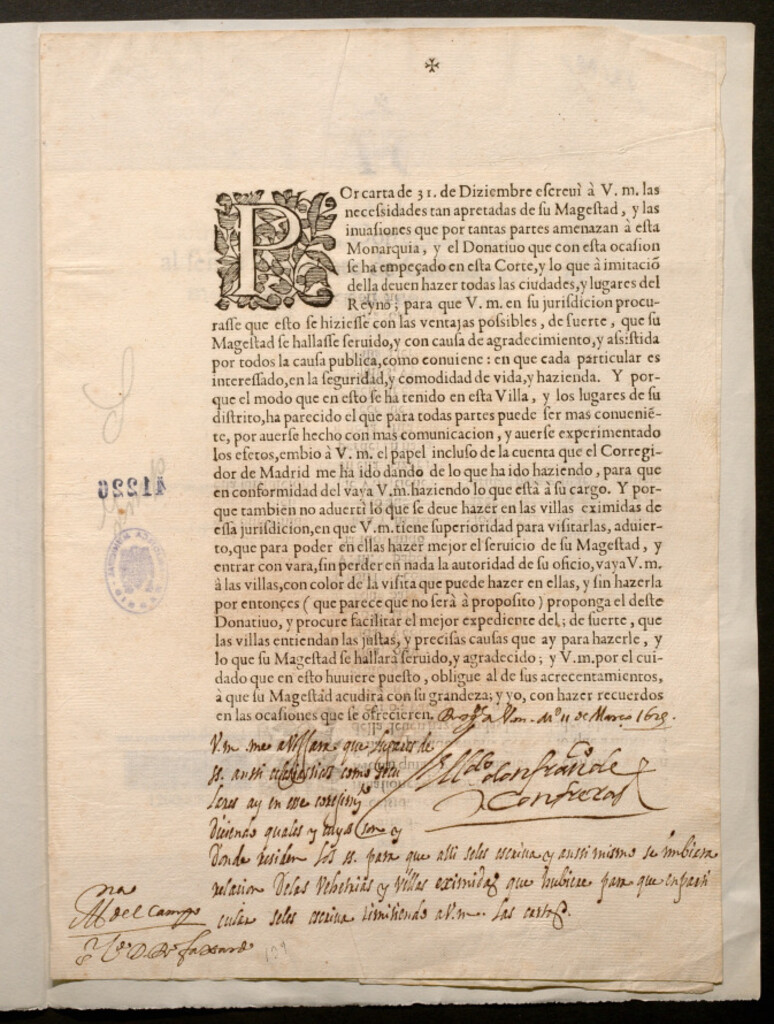 ✠
POr carta de 31. de Diziembre escreui à V. m. las
necessidades tan apretadas de su Magestad, y las
inuasiones que por tantas partes amenazan à esta
Monarquia, y el Donatiuo que con esta ocasion
se ha empeçado en esta Corte, y lo que à imitaciõ
della deuen hazer todas las ciudades, y lugares del
Reyno; para que V. m. en su jurisdicion procu-
rasse que esto se hiziesse con las ventajas possibles, de suerte, que su
Magestad se hallasse seruido, y con causa de agradecimiento, y assistida
por todos la causa publica, como conuiene: en que cada particular es
interessado, en la seguridad, y comodidad de vida, y hazienda. Y por-
que el modo que en esto se ha tenido en esta Villa, y los lugares de su
distrito, ha parecido el que para todas partes puede ser mas conueniẽ-
te, por auerse hecho con mas comunicacion, y auerse experimentado
los efetos, embio à V. m. el papel incluso de la cuenta que el Corregi-
dor de Madrid me ha ido dando de lo que ha ido haziendo, para que
en conformidad del vaya V.m. haziendo lo que està à su cargo. Y por-
que tambien no aduerti lo que se deue hazer en las villas eximidas de
essa jurisdicion, en que V.m. tiene superioridad para visitarlas, aduier-
to, que para poder en ellas hazer mejor el seruicio de su Magestad, y
entrar con vara, sin perder en nada la autoridad de su oficio, vaya V.m.
à las villas, con color de la visita que puede hazer en ellas, y sin hazerla
por entonçes ( que parece que no serà à proposito ) proponga el deste
Donatiuo, y procure facilitar el mejor expediente del; de suerte, que
las villas entiendan las justas, y precisas causas que ay para hazerle, y
lo que su Magestad se hallarà seruido, y agradecido; y V.m. por el cui-
dado que en esto huuiere puesto, obligue al de sus acrecentamientos,
à que su Magestad acudirà con su grandeza; y yo, con hazer recuerdos
en las ocasiones que se ofrecieren. 11 de Março 1625.
V.m. me avissara que lugares de
ss. aussi eclesiasticos como
leres ay en ese corregimy.to
Diciendo quales y cuyos son y
El l.do don fran.co de
Contreras
Donde residen los ss. para que alli seles escriva y aussi mismo se imbiara
relacion Delas Vehetrias y Villas eximidas que hubiere para que en parti
cular seles escriva remitiendo a V.m. las cartas.
m.na
del campo
41226
139